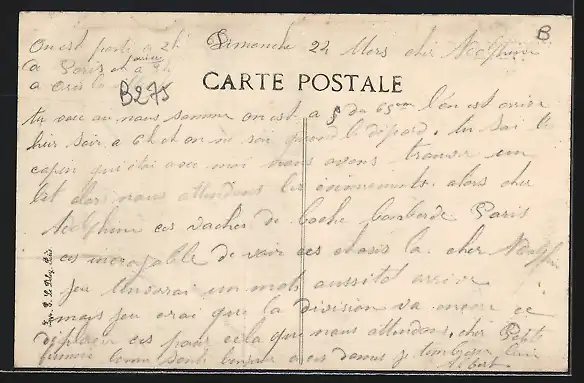 On est parti a 2h Dimanche 24 Mars cher Adolphine
a Paris et arrivé a 9h
B
CARTE POSTALE
B275
tu vois ou nous somme on est a du 65 l'on est arrivé
hier soir a 6h et on ne sai quand le dépard. tu sai le
copin qui étai avec moi nous avons trouver un
lit alors nous attendons les événements. alors cher
Adolphine ces vaches de boche bombarde Paris
ces incroyable de voir ces chosis la. cher Adolphine
jeu tinvairai un mot aussitot arrivé
mais jeu crai que la division va encore ce
deplacer ces pour cela que nous attendons. cher Petite
femme bonne santé bonjour a ces dames j tembrasse
Albert
Imp. P. Le Deley, Paris